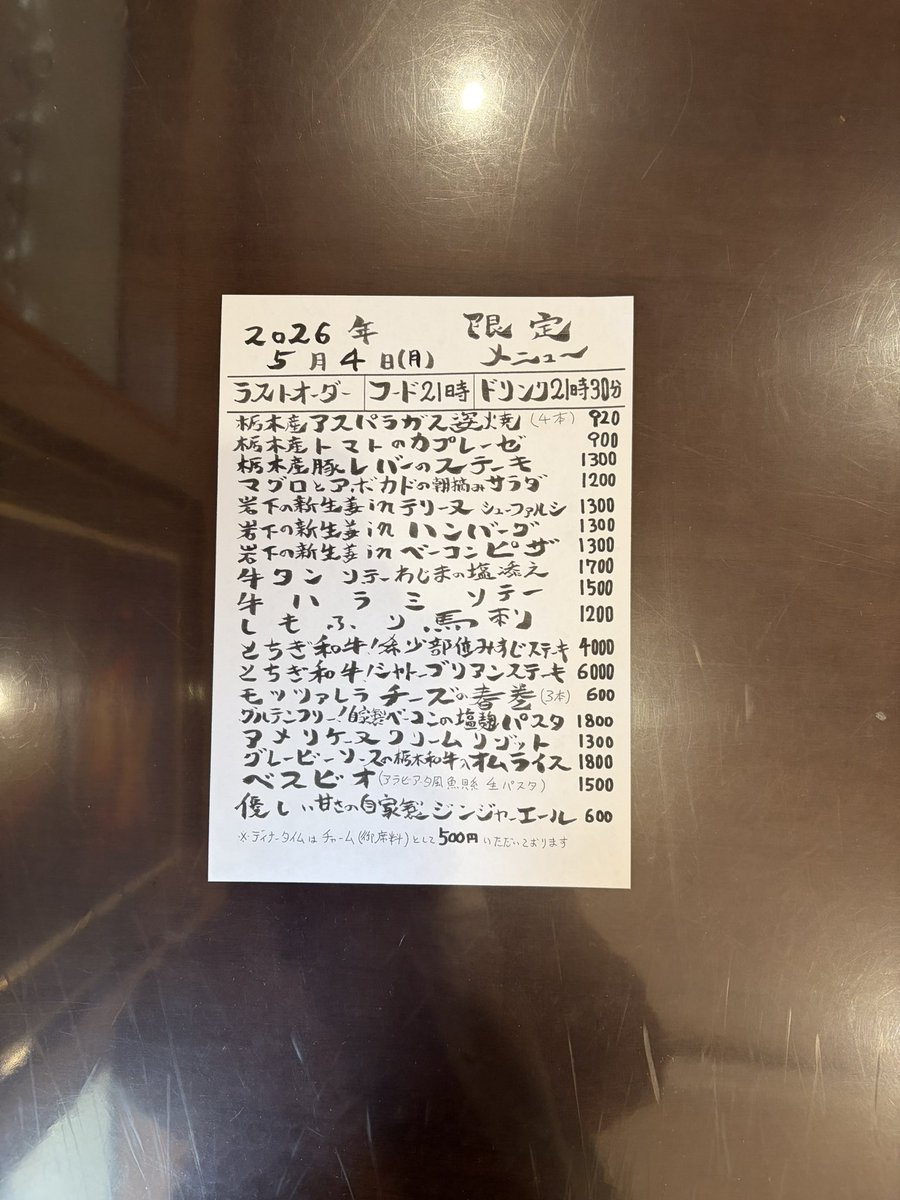 2026年 限定
5月4日(月) メニュー
ラストオーダー フード21時 ドリンク21時30分
栃木産アスパラガス炭焼(4本) 920
栃木産トマトのカプレーゼ 900
栃木産豚レバーのステーキ 1300
マグロとアボカドの朝摘みサラダ 1200
岩下の新生姜inテリーヌ シューファルシ 1300
岩下の新生姜in ハンバーグ 1300
岩下の新生姜in ベーコンピザ 1300
牛タンソテーわじまの塩添え 1700
牛ハラミソテー 1500
しもふり馬刺 1200
とちぎ和牛!希少部位みすじステキ 4000
とちぎ和牛!シャトーブリアンステーキ 6000
モッツァレラチーズの春巻(3本) 600
グルテンフリー!自家製ベーコンの塩麹パスタ 1800
アメリケーヌクリームリゾット 1300
グレービーソースの栃木和牛入オムライス 1800
ベスビオ(アラビアータ風魚貝系 生パスタ) 1500
優しい甘さの自家製ジンジャーエール 600
※ディナータイムはチャーム(御席料)として500円いただいております